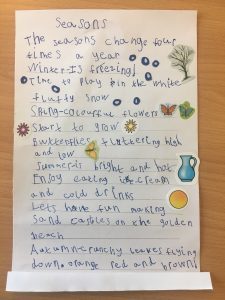 Seasons
The seasons change four
times a year
Winter-Is freezing!
Time to play in the white
fluffy snow
Spring-colourful flowers
Start to grow
Butterflies fluttering high
and low
Summer-is bright and hot
Enjoy eating ice cream
and cold drinks
Lets have fun making
Sand castles on the golden
beach
Autumn-crunchy leaves flying
down. orange red and brown!